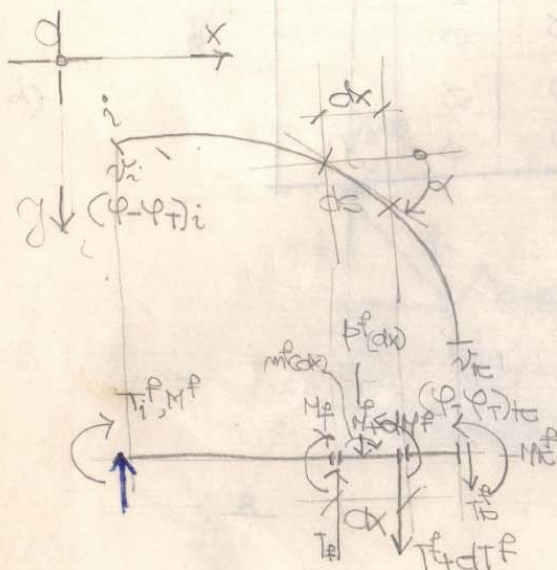 O
x
i
dx
v_i
(φ-φ_T)_i
y
ds
α
p^f(dx)
m^f(dx)
v_k
T_i^f, M^f
M^f
M^f+dM^f
(φ-φ_T)_k
M_k^f
T_k^f
dx
T^f
T^f+dT^f